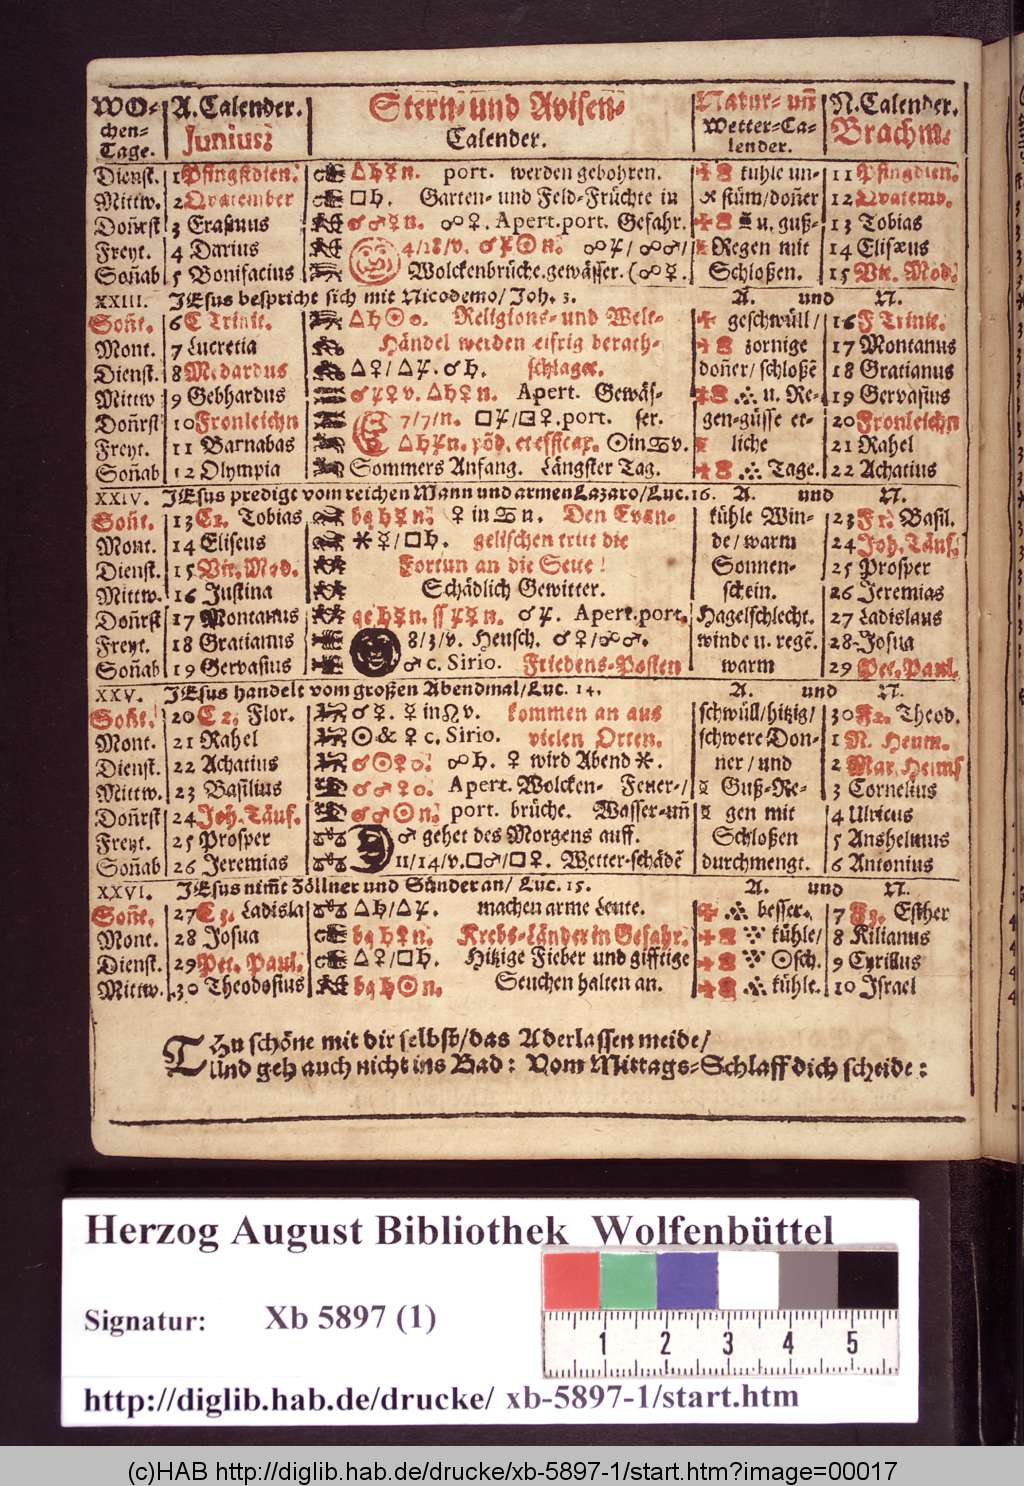 WO- A. Calender. Stern- und Avisen- Natur- uñ N. Calender.
chen- Junius. Calender. Wetter-Ca- Brachm.
Tage. lender.
Dienst. 1 Pfingstdien. △♄☿n. port. werden gebohren. kuhle un- 11 Pfingdien.
Mittw. 2 Quatember □♄. Garten- und Feld-Früchte in stüm/doñer 12 Quatemb.
Doñrst 3 Erasmus ♂♂☿n. ☍♀. Apert.port. Gefahr. u. guß- 13 Tobias
Freyt. 4 Darius 4/28/v. Regen mit 14 Elisæus
Soñab 5 Bonifacius Wolckenbrüche.gewässer. (☍☿. Schloßen. 15 Vit. Mod.
XXIII. JEsus bespricht sich mit Nicodemo/ Joh. 3. A. und N.
Soñt. 6 C Trinit. △♄☉ Religions- und Welt- geschwüll/ 16 F Trinit.
Mont. 7 Lucretia Händel werden eifrig berath- zornige 17 Montanus
Dienst. 8 Medardus △♀/△♃.♂♄. schlaget. doñer/schloßẽ 18 Gratianus
Mittw 9 Gebhardus ♂♃♀v. △♄☿n. Apert. Gewäs- u. Re- 19 Gervasius
Doñrst 10 Fronleichn 7/7/n. □♃/□♀.port. ser. gen-güsse et- 20 Fronleichn
Freyt. 11 Barnabas △♄♃n. et efficax. ☉in♋v. liche 21 Rahel
Soñab 12 Olympia Sommers Anfang. Längster Tag. Tage. 22 Achatius
XXIV. JEsus predigt vom reichen Mann und armen Lazaro/Luc.16. A. und N.
Soñt. 13 C1. Tobias bq♄☿n. ♀ in ♋ n. Den Evan- kühle Win- 23 F1. Basil.
Mont. 14 Eliseus ⚹☿/□♄. gelischen tritt die de/warm 24 Joh. Täuf.
Dienst. 15 Vit. Mod. Fortun an die Seite! Sonnen- 25 Prosper
Mittw. 16 Justina Schädlich Gewitter. schein. 26 Jeremias
Doñrst 17 Montanus ♂♃. Apert.port. Hagelschlecht. 27 Ladislaus
Freyt. 18 Gratianus 8/3/v. Heusch. ♂♀/☍♂. winde u. regẽ. 28 Josua
Soñab 19 Gervasius ♂ c. Sirio. Friedens-Posten warm 29 Pet. Paul.
XXV. JEsus handelt vom großen Abendmal/Luc. 14. A. und N.
Soñt. 20 C 2. Flor. ♂☿. ☿ in♌v. kommen an aus schwüll/hitzig/ 30 F2. Theod.
Mont. 21 Rahel ☉ & ♀ c. Sirio. vielen Orten. schwere Don- 1 N. Heum.
Dienst. 22 Achatius ♂☉♀ ☍♄. ♀ wird Abend ⚹. ner/und 2 Mar. Heims
Mittw. 23 Basilius ♂♂♀ Apert. Wolcken- Feuer-/ Guß-Re- 3 Cornelius
Doñrst 24 Joh. Täuf. ♂♂☉n. port. brüche. Wasser-uñ gen mit 4 Ulricus
Freyt. 25 Prosper ♂ gehet des Morgens auff. Schloßen 5 Anshelmus
Soñab 26 Jeremias 11/14/v.□♂/□♀. Wetter-schädẽ durchmengt. 6 Antonius
XXVI. JEsus nim̃t Zöllner und Sünder an/ Luc. 15. A. und N.
Soñt. 27 C 3. Ladisla △♄/△♃. machen arme Leute. besser. 7 F3. Esther
Mont. 28 Josua bq♄♀n. Krebs-Länder in Gefahr. kühle/ 8 Kilianus
Dienst. 29 Pet. Paul. △♀/□♄. Hitzige Fieber und gifftige ☉sch. 9 Cyrillus
Mittw. 30 Theodosius bq♄☉n. Seuchen halten an. kühle. 10 Israel
Thu schöne mit dir selbst/das Aderlassen meide/
Und geh auch nicht ins Bad: Vom Mittags-Schlaff dich scheide:
Herzog August Bibliothek Wolfenbüttel
Signatur: Xb 5897 (1)
1 2 3 4 5
http://diglib.hab.de/drucke/ xb-5897-1/start.htm
(c)HAB http://diglib.hab.de/drucke/xb-5897-1/start.htm?image=00017